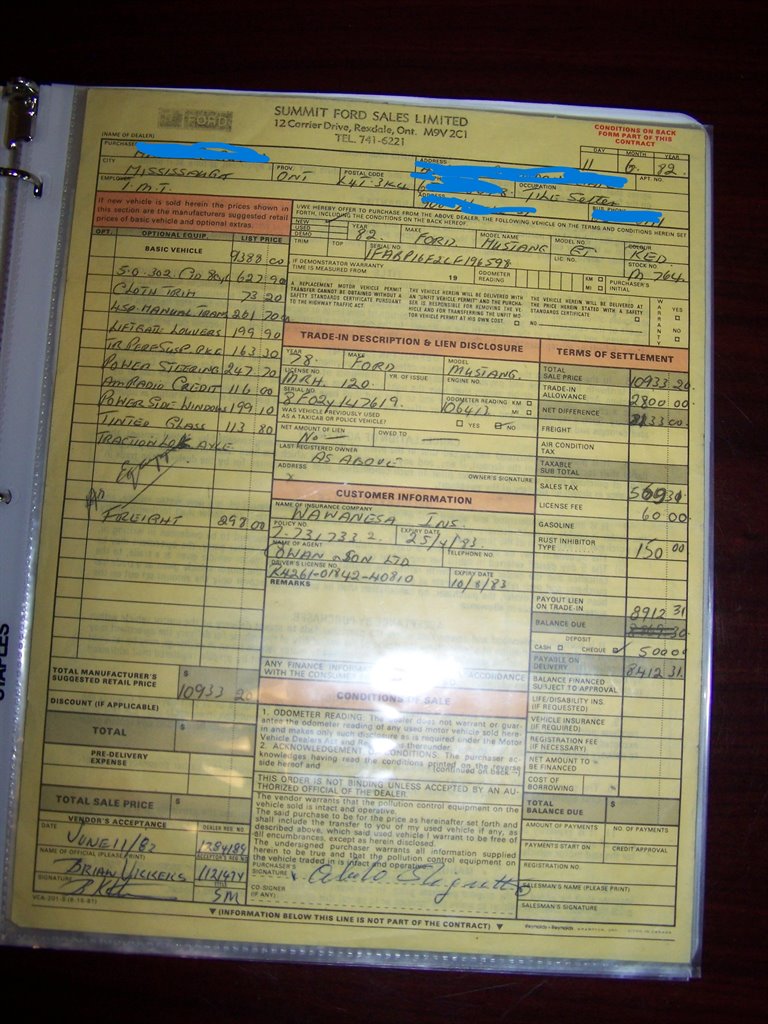 FORD
SUMMIT FORD SALES LIMITED
12 Carrier Drive, Rexdale, Ont. M9V 2C1
TEL. 741-6221
CONDITIONS ON BACK
FORM PART OF THIS
CONTRACT
(NAME OF DEALER)
ADDRESS
DAY MONTH YEAR
11 6 82
CITY MISSISSAUGA PROV. ONT POSTAL CODE
OCCUPATION Tile Setter
APT. NO.
I.M.T.
ADDRESS
BUS. PHONE
If new vehicle is sold herein the prices shown in
this section are the manufacturers suggested retail
prices of basic vehicle and optional extras.
I/WE HEREBY OFFER TO PURCHASE FROM THE ABOVE DEALER, THE FOLLOWING VEHICLE ON THE TERMS AND CONDITIONS HEREIN SET
FORTH, INCLUDING THE CONDITIONS ON THE BACK HEREOF.
NEW
USED
DEMO
YEAR 82 MAKE FORD MODEL MUSTANG MODEL NO. GT COLOUR RED
TRIM TOP SERIAL NO. LIC. NO. STOCK NO.
IF DEMONSTRATOR WARRANTY
TIME IS MEASURED FROM 19 ODOMETER
READING KM MI PURCHASER'S
INITIAL
A REPLACEMENT MOTOR VEHICLE PERMIT
TRANSFER CANNOT BE OBTAINED WITHOUT A
SAFETY STANDARDS CERTIFICATE PURSUANT
TO THE HIGHWAY TRAFFIC ACT.
THE VEHICLE HEREIN WILL BE DELIVERED WITH
AN "UNFIT VEHICLE" PERMIT AND THE PURCHA-
SER IS RESPONSIBLE FOR REMOVING THE VE-
HICLE AND FOR TRANSFERRING THE UNFIT MO-
TOR VEHICLE PERMIT AT HIS OWN COST.
THE VEHICLE HEREIN WILL BE DELIVERED AT
THE PRICE HEREIN STATED WITH A SAFETY
STANDARDS CERTIFICATE
NO
WARRANTY YES NO
OPT. OPTIONAL EQUIP. LIST PRICE
BASIC VEHICLE 9388 00
5.0 302 CID 627 90
CLOTH TRIM 73 20
4SP. MANUAL TRANS 201 70
LIFTGATE LOUVERS 199 90
TR PERF SUSP. PKG 163 30
POWER STEERING 247 70
AM RADIO CREDIT 116 00
POWER SIDE WINDOWS 199 10
TINTED GLASS 113 80
TRACTION LOK AXLE
FREIGHT 298 00
TRADE-IN DESCRIPTION & LIEN DISCLOSURE
YEAR 78 MAKE FORD MODEL MUSTANG
LICENSE NO. MRH 120 YR. OF ISSUE ENGINE NO.
SERIAL NO. 8F02Y147619 ODOMETER READING KM MI 106413
WAS VEHICLE PREVIOUSLY USED
AS A TAXICAB OR POLICE VEHICLE? YES NO
NET AMOUNT OF LIEN No OWED TO
LAST REGISTERED OWNER AS ABOVE
ADDRESS OWNER'S SIGNATURE
TERMS OF SETTLEMENT
TOTAL
SALE PRICE 10933 20
TRADE-IN
ALLOWANCE 2800 00
NET DIFFERENCE 8133 00
FREIGHT
AIR CONDITION
TAX
TAXABLE
SUB TOTAL
SALES TAX 569 31
LICENSE FEE 60 00
GASOLINE
RUST INHIBITOR
TYPE 150 00
PAYOUT LIEN
ON TRADE-IN 8912 31
BALANCE DUE
DEPOSIT
CASH CHEQUE 500 00
PAYABLE ON
DELIVERY 8412 31
BALANCE FINANCED
SUBJECT TO APPROVAL
LIFE/DISABILITY INS.
(IF REQUESTED)
VEHICLE INSURANCE
(IF REQUIRED)
REGISTRATION FEE
(IF NECESSARY)
NET AMOUNT TO
BE FINANCED
COST OF
BORROWING %
TOTAL
BALANCE DUE $
AMOUNT OF PAYMENTS NO. OF PAYMENTS
PAYMENTS START ON CREDIT APPROVAL
REGISTRATION NO.
SALESMAN'S NAME (PLEASE PRINT)
SALESMAN'S SIGNATURE
CUSTOMER INFORMATION
NAME OF INSURANCE COMPANY WAWANESA INS.
POLICY NO. 7731733 2 EXPIRY DATE 25/4/83
NAME OF AGENT COWAN & SON LTD TELEPHONE NO.
DRIVER'S LICENSE NO. K4261-01842-40810 EXPIRY DATE 10/8/83
REMARKS
CONDITIONS OF SALE
1. ODOMETER READING: The dealer does not warrant or guar-
antee the odometer reading of any used motor vehicle sold here-
in and makes only such disclosure as is required under the Motor
Vehicle Dealers Act and Regulations thereunder.
2. ACKNOWLEDGEMENT OF CONDITIONS. The purchaser ac-
knowledges having read the conditions printed on the reverse
side hereof and (continued on back)
THIS ORDER IS NOT BINDING UNLESS ACCEPTED BY AN AU-
THORIZED OFFICIAL OF THE DEALER
The vendor warrants that the pollution control equipment on the
vehicle sold is intact and operative.
The said purchase to be for the price as hereinafter set forth and
shall include the transfer to you of my used vehicle if any, as
described above, which said used vehicle I warrant to be free of
all encumbrances, except as herein disclosed.
The undersigned purchaser warrants all information supplied
herein to be true and that the pollution control equipment on
the vehicle traded in is intact and operative.
PURCHASER'S
SIGNATURE
CO-SIGNER
(IF ANY)
TOTAL MANUFACTURER'S
SUGGESTED RETAIL PRICE $ 10933 20
DISCOUNT (IF APPLICABLE)
TOTAL $
PRE-DELIVERY
EXPENSE
TOTAL SALE PRICE $
VENDOR'S ACCEPTANCE
DATE JUNE 11/82 DEALER REG. NO.
NAME OF OFFICIAL (PLEASE PRINT) BRIAN VICKERS
SIGNATURE TITLE SM
▼ (INFORMATION BELOW THIS LINE IS NOT PART OF THE CONTRACT) ▼
STAPLES